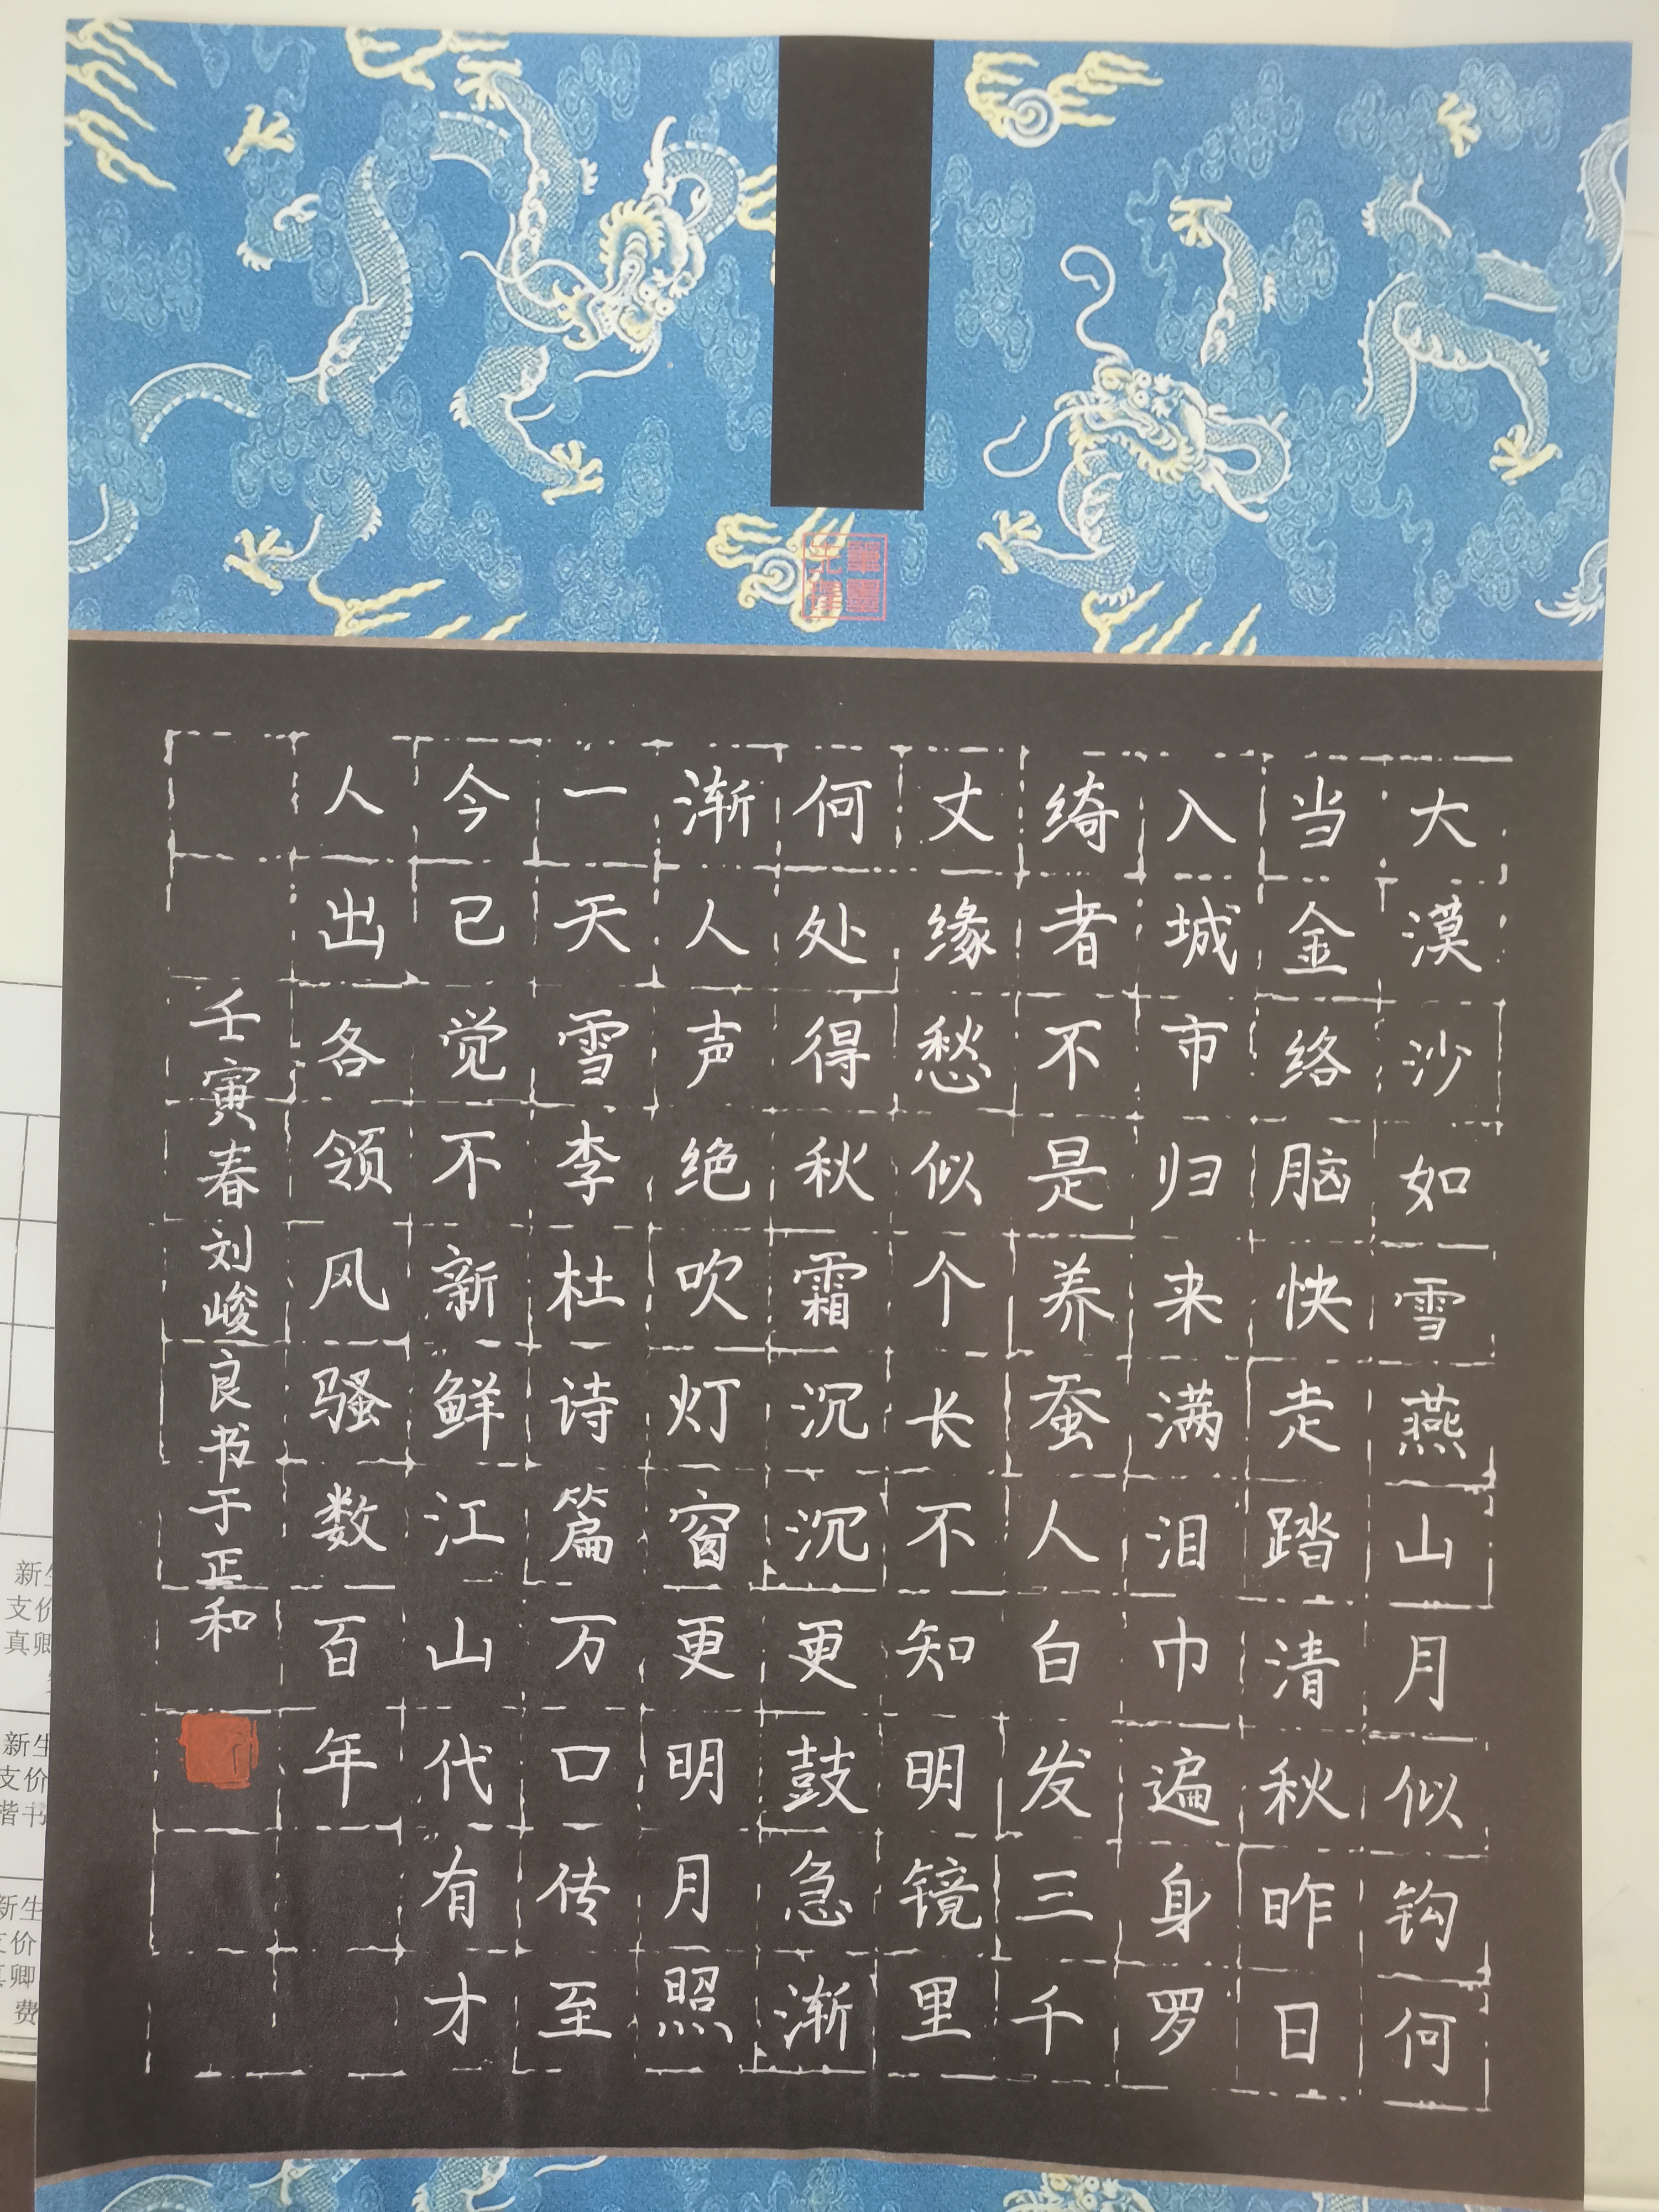 大漠沙如雪燕山月似钩何
当金络脑快走踏清秋昨日
入城市归来满泪巾遍身罗
绮者不是养蚕人白发三千
丈缘愁似个长不知明镜里
何处得秋霜沉沉更鼓急渐
渐人声绝吹灯窗更明月照
一天雪李杜诗篇万口传至
今已觉不新鲜江山代有才
人出各领风骚数百年
壬寅春刘峻良书于正和